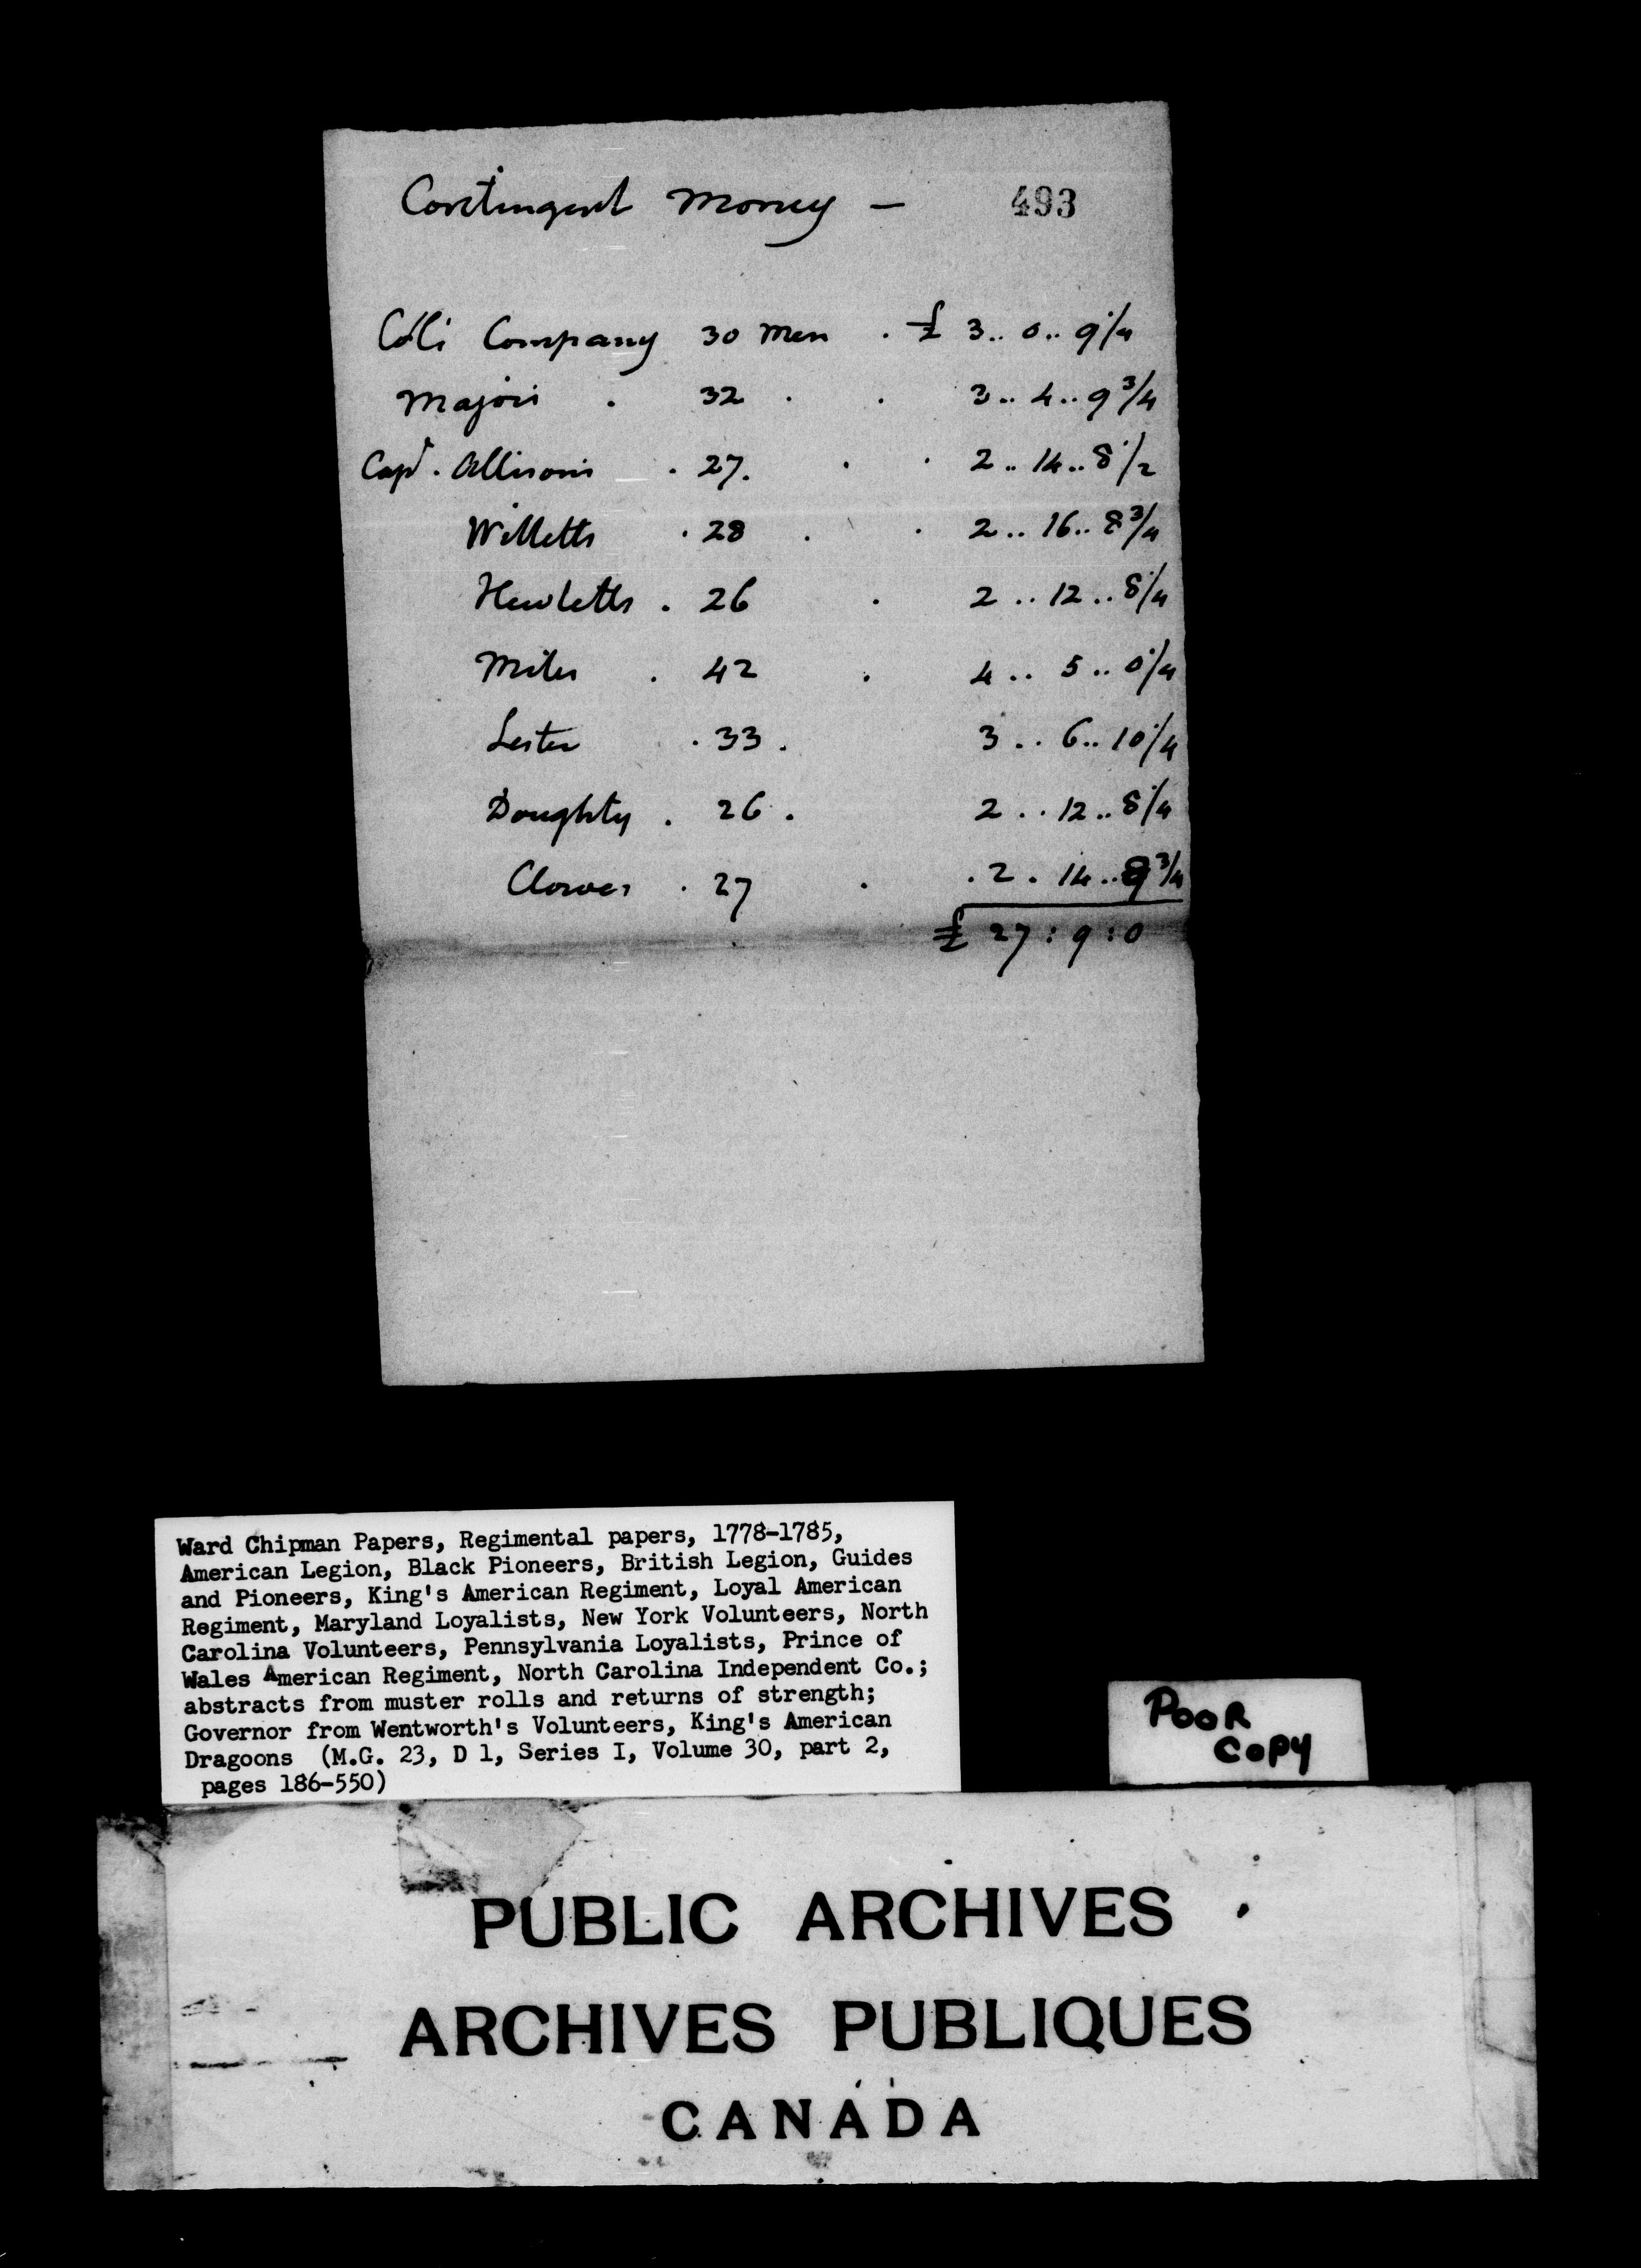 Contingent Money — 493
Col's Company 30 Men . £ 3.. 0.. 9 1/4
Major's . 32 . . 3.. 4.. 9 3/4
Capt. Allison's . 27. . . 2.. 14.. 8 1/2
Willetts . 28 . . 2.. 16.. 8 3/4
Hewletts . 26 . 2.. 12.. 8 1/4
Miles . 42 . 4.. 5.. 0 1/4
Lester . 33 . 3.. 6.. 10 1/4
Doughty . 26 . 2.. 12.. 8 1/4
Clowes . 27 . . 2. 14.. 9 3/4
£ 27 : 9 : 0
Ward Chipman Papers, Regimental papers, 1778-1785,
American Legion, Black Pioneers, British Legion, Guides
and Pioneers, King's American Regiment, Loyal American
Regiment, Maryland Loyalists, New York Volunteers, North
Carolina Volunteers, Pennsylvania Loyalists, Prince of
Wales American Regiment, North Carolina Independent Co.;
abstracts from muster rolls and returns of strength;
Governor from Wentworth's Volunteers, King's American
Dragoons (M.G. 23, D 1, Series I, Volume 30, part 2,
pages 186-550)
POOR
COPY
PUBLIC ARCHIVES
ARCHIVES PUBLIQUES
CANADA